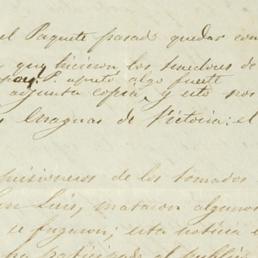 el Paquete pasado quedar con
que hicieron los tenedores de
P. apretó algo fuerte
adjunta copia, y esto nos
s Enaguas de Victoria: el
misioneros de los tomados
an Luis, mataron algunos
se fugaron; esta noticia
ha participado al público